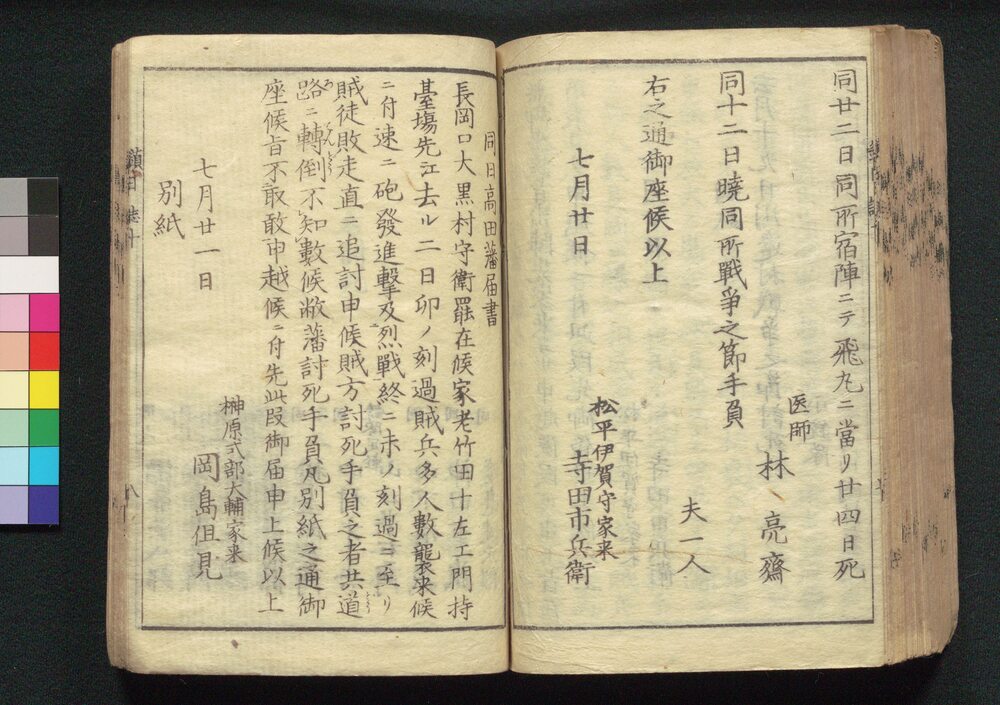 同廿二日同所宿陣ニテ飛丸ニ當リ廿四日死
医師
林亮齋
同十二日曉同所戰爭之節手負
夫一人
右之通御座候以上
七月廿日
松平伊賀守家来
寺田市兵衛
同日高田藩届書
長岡口大黒村守衛罷在候家老竹田十左工門持
臺塲先江去ル二日卯ノ刻過賊兵多人數襲来候
ニ付速ニ砲發進撃及烈戰終ニ未ノ刻過ニ至リ
賊徒敗走直ニ追討申候賊方討死手負之者共道
路ニ轉倒不知數候敝藩討死手負凡別紙之通御
座候旨不取敢申越候ニ付先此段御届申上候以上
七月廿一日
榊原式部大輔家来
岡島但見
別紙